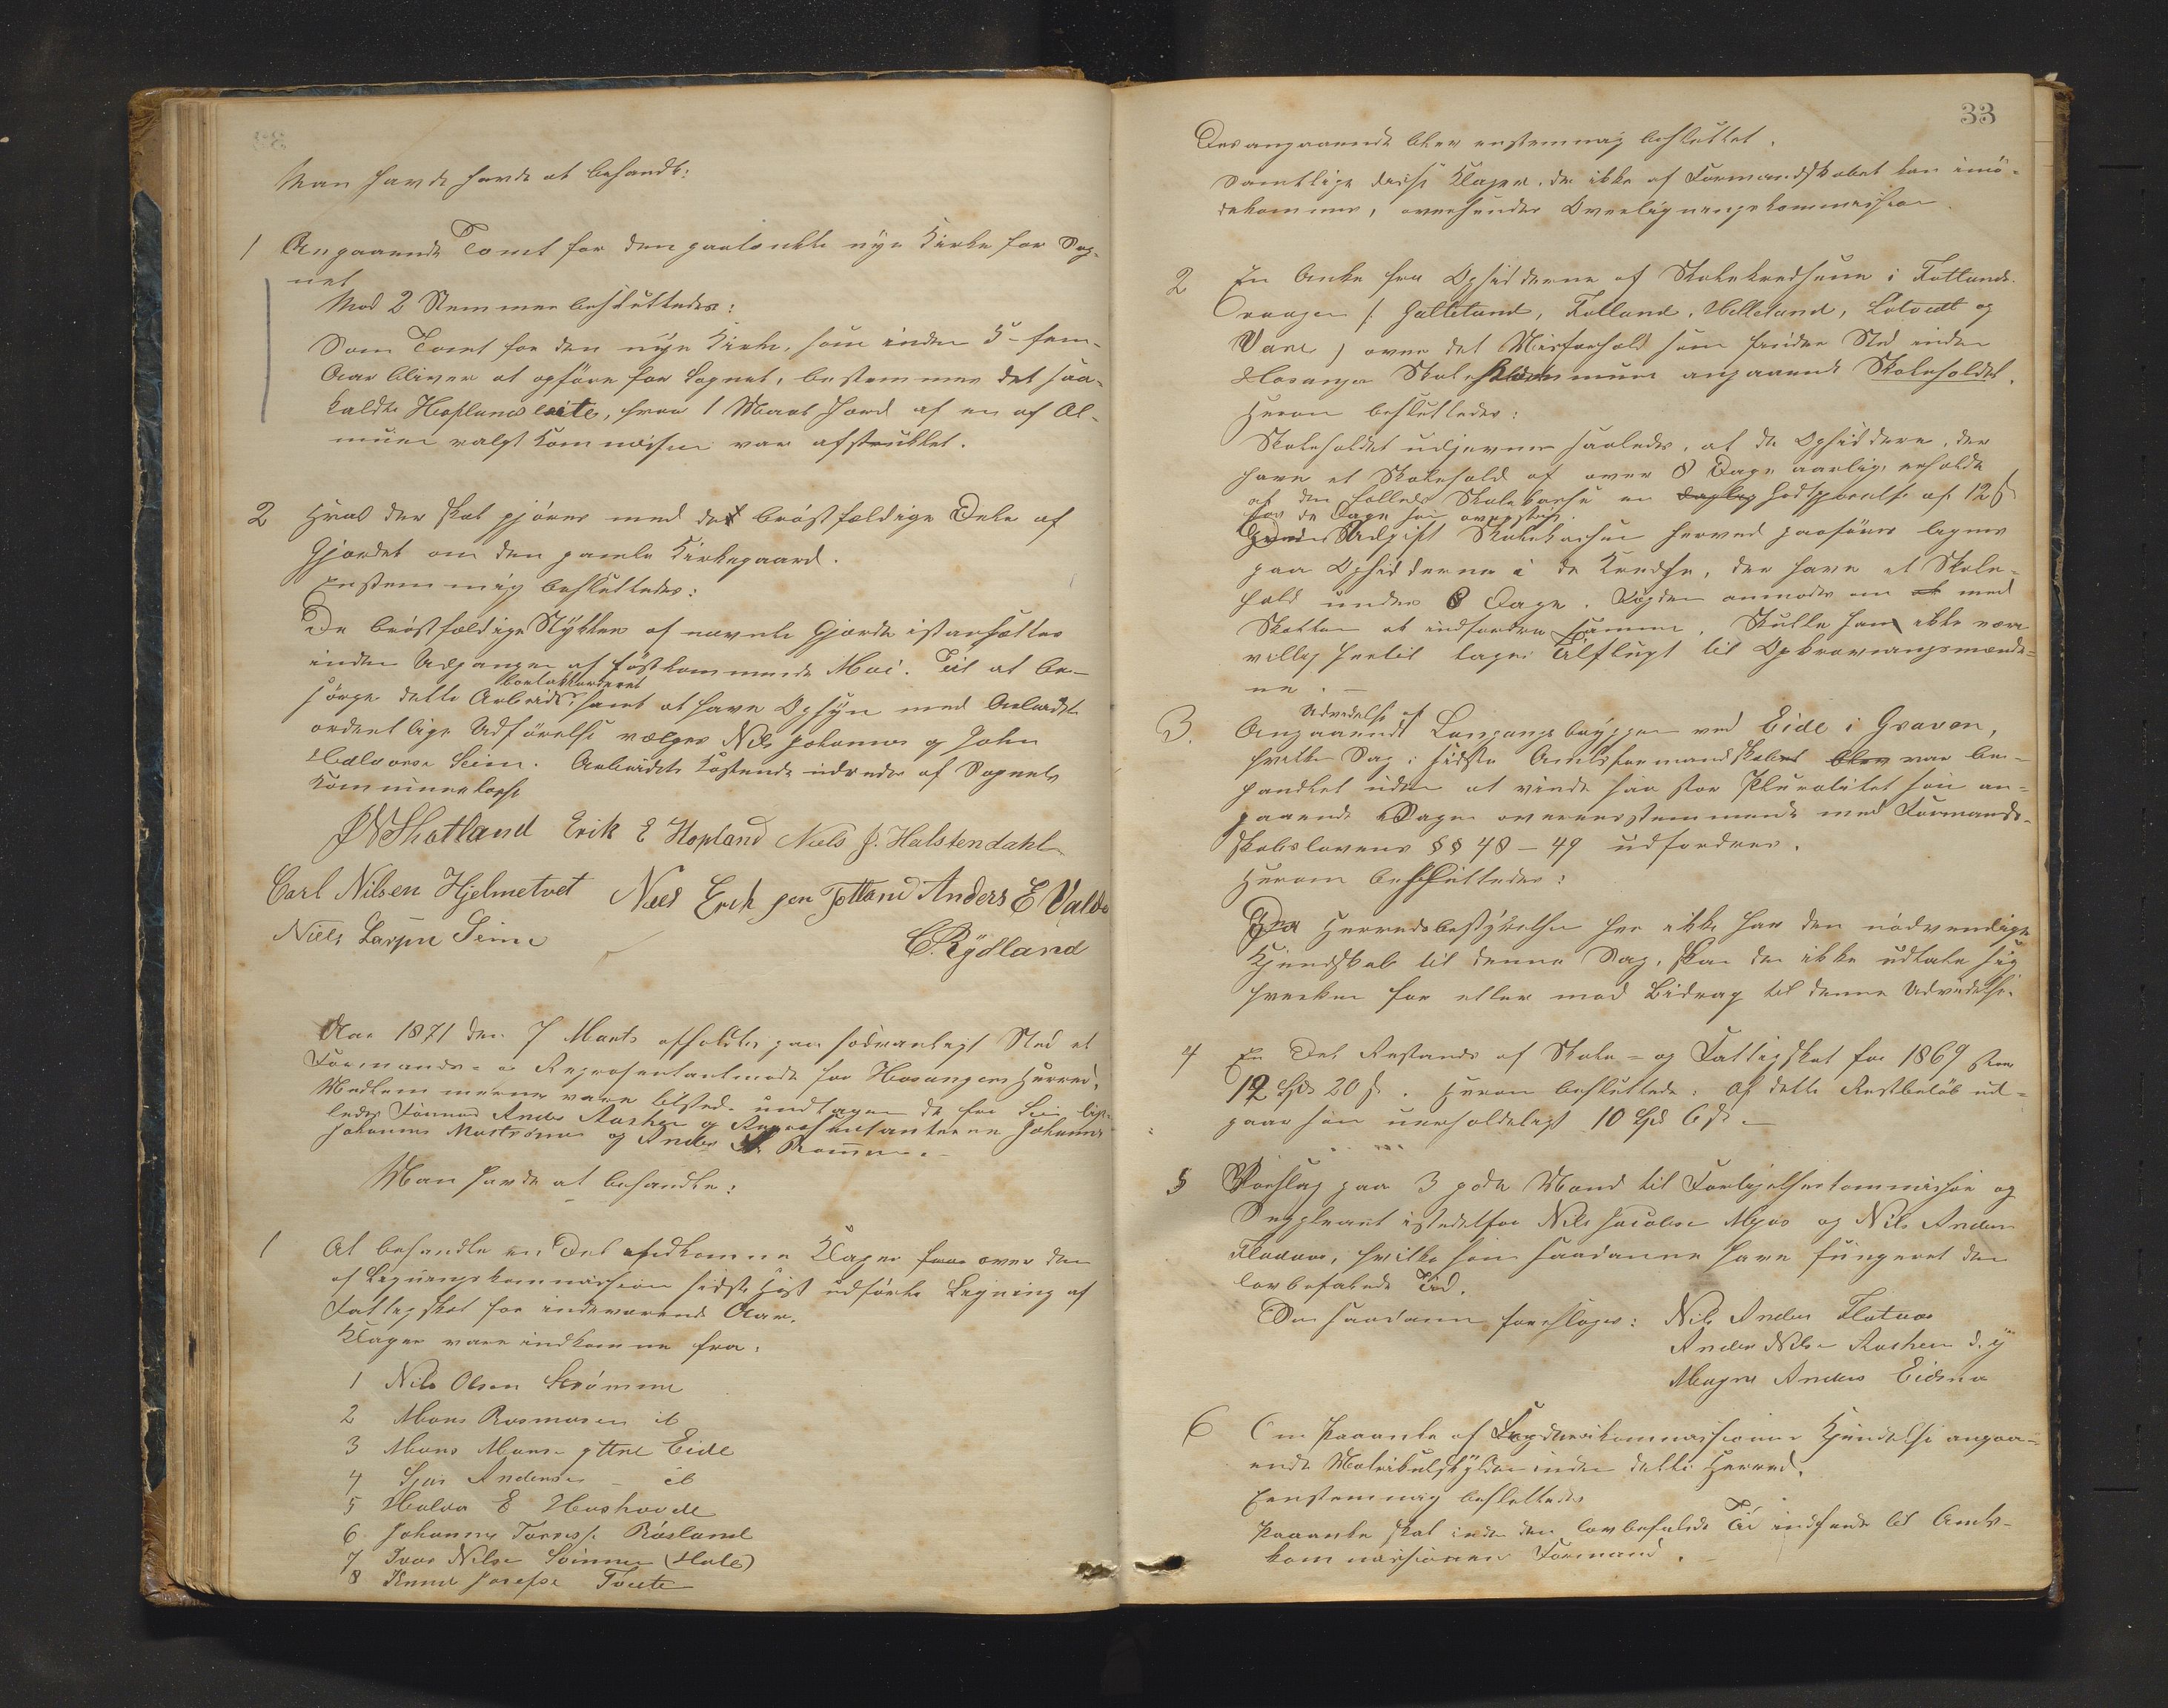 Man havde havde at behandle:
1 Angaaende Tomt for den paatænkte nye Kirke for Sog-
net
Mod 2 Stemmer besluttedes:
Som Tomt for den nye Kirke, som inden 5 - fem -
Aar bliver at opføre for Sognet, bestemmes det saa-
kaldte Hoplandsleite, hvor 1 Maal Jord af en af Al-
muen valgt Kommission var afstukket.
2 Hvad der skal gjøres med det brøstfældige Dele af
Gjærdet om den gamle Kirkegaard.
Enstemmig besluttedes:
De brøstfældige Stykker af nævnte Gjærde istandsættes
inden Udgangen af førstkommende Mai. Til at be-
sørge dette Arbeide bortakkorderet samt at have Opsyn med Arbeidets
ordentlige Udførelse vælges Nils Johannes og John
Halvorse Seim. Arbeidets Kostende udredes af Sognets
Kommunekasse
Skotland Erik E Hopland Niels J. Halstendahl
Carl Nilsen Hjelmetvet Niels Erik sen Totland Anders E Valde
Niels Larsen Seim C. Rydland
Aar 1871 den 7 Marts afholdtes paa sædvanligt Sted et
Formands- og Repræsentantmøde for Hosangers Herred.
Medlemmerne vare tilstede undtagen de fra Seim lige-
ledes Formand Anders Aasheim og Repræsentanterne Johannes
Johannes Mastrømen og Anders Rommen.
Man havde at behandle:
1 At behandle en Del indkomne Klager over den
af Ligningskommissionen sidste Høst udførte Ligning af
Fattigskat for indeværende Aar.
Klager vare indkomne fra:
1 Nils Olsen Strømme
2 Mons Rasmusen ib
3 Mons Monse yttre Eide
4 Sjur Andersen - ib
5 Halvor E Hushovde
6. Johannes Torress. Røsland
7 Ivar Nilsen Soinne (Hole)
8 Knud Josefse Tveite
33
Desangaaende blev enstemmig besluttet.
Samtlige disse Klager, da ikke af Formandskabet kan imø-
dekommes, oversendes Overligningskommission
2 En Anke fra Opsidderne af Skolekredsene i Fotlands-
vaagen (: Halleland, Fotland, Helleland, Lotvedt og
Vare) over det Misforhold som finder Sted inden
Hosanger Skolekommune angaaende Skoleholdet.
Herom besluttedes:
Skoleholdet udjævnes saaledes, at de Opsiddere, der
have et Skolehold af over 8 Dage aarlig, erholde
af den fælleds Skolekasse en daglig Godtgjørelse af 12 ß
for de Dage som overstige.
Den Udgift Skolekassen herved paaføres lignes
paa Opsidderne i de Kredse, der have et Skole-
hold under 8 Dage. Fogden anmodes om at med
Skatten at indfordre samme. Skulle han ikke være
villig hertil tages Tilflugt til Opkrævningsmænde-
ne. -
3. Angaaende Udvidelse af Langangsbryggen ved Eide i Graven,
hvilken Sag i sidste Amtsformandskab blev var be-
handlet uden at vinde saa stor Pluralitet som an-
gaaende Sagen overensstemmende med Formands-
skabslovens §§ 48 - 49 udfordres.
Herom besluttedes:
Da Herredsbestyrelsen her ikke har den nødvendige
Kjendskab til denne Sag, kan den ikke udtale sig
hverken for eller mod Bidrag til denne Udvidelse.
4 En Del Restance af Skole- og Fattigskat for 1869 stor
12 Spd 20 ß. Herom besluttede: Af dette Restbeløb ud-
gaar som uerholdeligt 10 Spd 6 ß. -
5 Forslag paa 3 gode Mænd til Forligelseskommissær og
Suppleant istedetfor Nils Jacobsen Mjøs og Nils Anders
Flatøen, hvilke som saadanne have fungeret den
lovbefalede Tid.
Som saadanne foresloges: Nils Anders Flatøen
Anders Nilsen Aasheim d. y
Magne Anders Eidsnes
6 Om Paaanke af Kommissionens Kjendelse angaa-
ende Matrikulskylden inden dette Herred.
Eenstemmig besluttedes
Paaanke skal inden den lovbefalede Tid indsendes til Amts-
kommissionens Formand. -